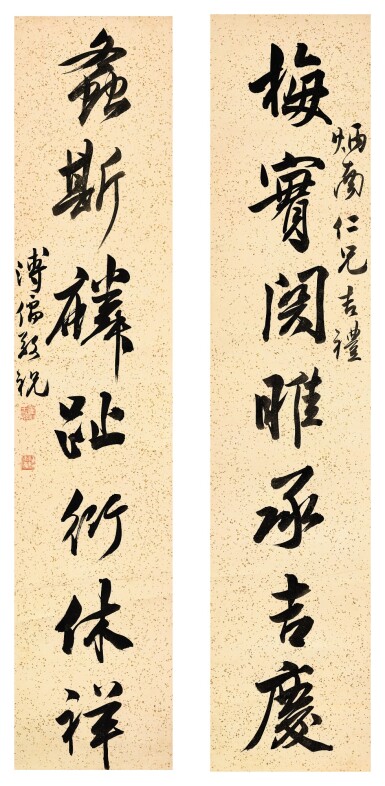 梅實關雎承吉慶
炳南仁兄吉禮
螽斯麟趾衍休祥
溥儒敬祝